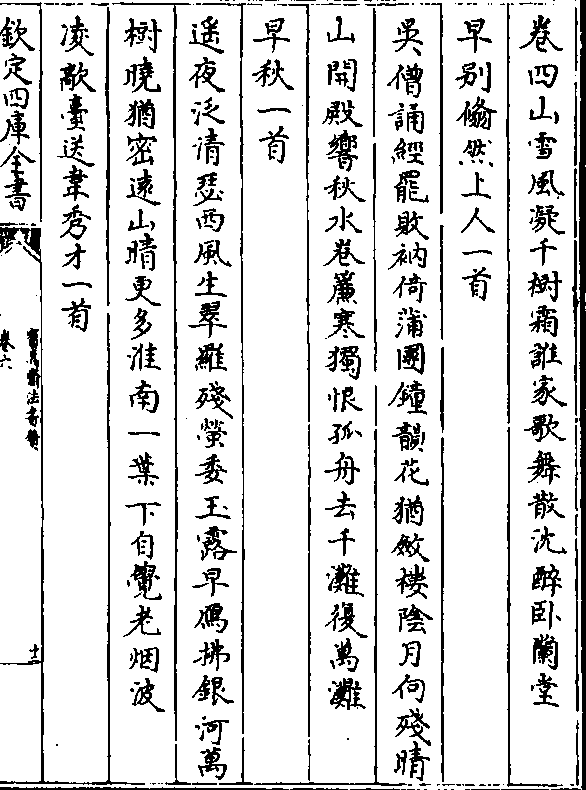 卷四山雪風凝千樹霜誰家歌舞散沈醉卧蘭堂
早别翛然上人一首
吳僧誦經罷敗衲倚蒲團鐘韻花猶斂樓陰月向殘晴
山開殿響秋水卷簾寒獨恨孤舟去千灘復萬灘
早秋一首
遥夜泛清瑟西風生翠蘿殘螢委玉露早鴈拂銀河萬
樹曉猶密遠山晴更多淮南一葉下自覺老烟波
凌歊臺送韋秀才一首
欽定四庫全書
卷六
十二